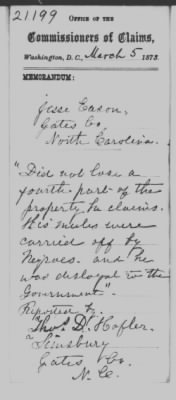 21199
OFFICE OF THE
Commissioners of Claims,
Washington, D. C., March 5, 1873.
MEMORANDUM:
Jesse Eason,
Gates Co.
North Carolina.
"Did not lose a
fourth part of the
property he claims.
His mules were
carried off by
Negroes. and he
was disloyal to the
Government".
Reported by
Thos. D. Hofler.
Gates Co.
N. C.